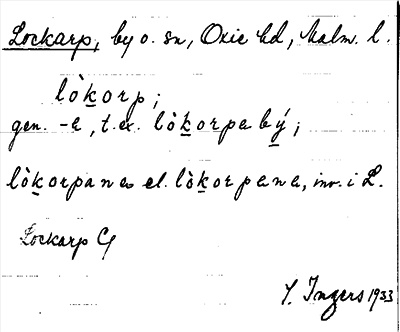 Lockarp, by o. sn, Oxie hd, Malm. l.
lòkorp;
gen. -a, t.ex. lòkorpabý;
lòkorpanas el. lòkorpana, inv. i L.
Lockarp G
I. Ingers 1933